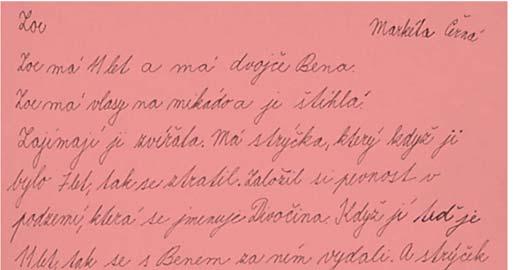 Zoe
Markéta Černá
Zoe má 11 let a má dvojče Bena.
Zoe má vlasy na mikádo a je štíhlá.
Zajímají ji zvířata. Má strýčka, který když ji
bylo 7 let, tak se ztratil. Založil si pevnost v
podzemí, která se jmenuje Divočina. Když jí teď je
11 let, tak se s Benem za ním vydali. A strýček